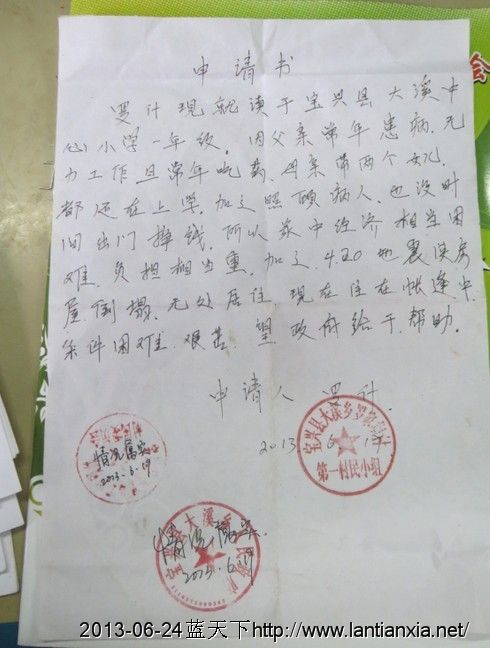 申请书
罗计现就读于宝兴县大溪中
心小学一年级，因父亲常年患病，无
力工作且常年吃药，母亲带两个女儿，
都还在上学，加之照顾病人，也没时
间出门挣钱，所以家中经济相当困
难，负担相当重，加之4.20地震使房
屋倒塌，无处居住，现在住在帐逢中，
条件困难、艰苦，望政府给于帮助。
申请人 罗计
2013
宝兴县大溪乡
第一村民小组
情况属实
2013.6.19
大溪
情况属实.
2013.6.19
2013-06-24蓝天下http://www.lantianxia.net/